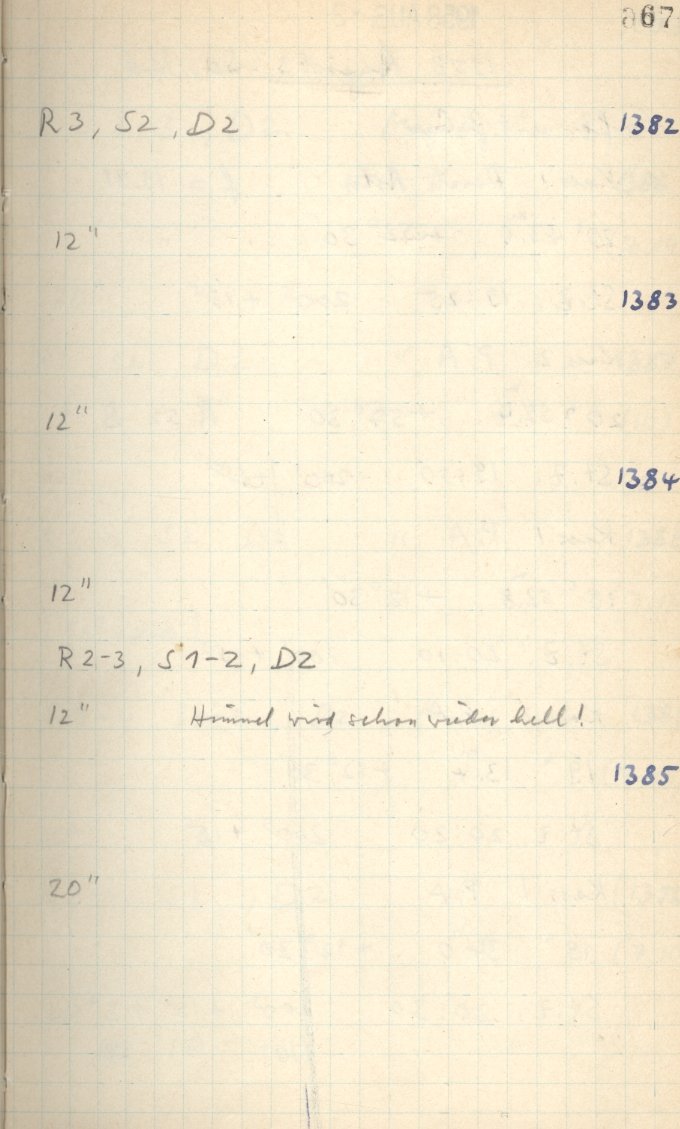 67
R 3, S2, D2 1382
12"
1383
12"
1384
12"
R 2-3, S 1-2, D2
12" Himmel wird schon wieder hell!
1385
20"